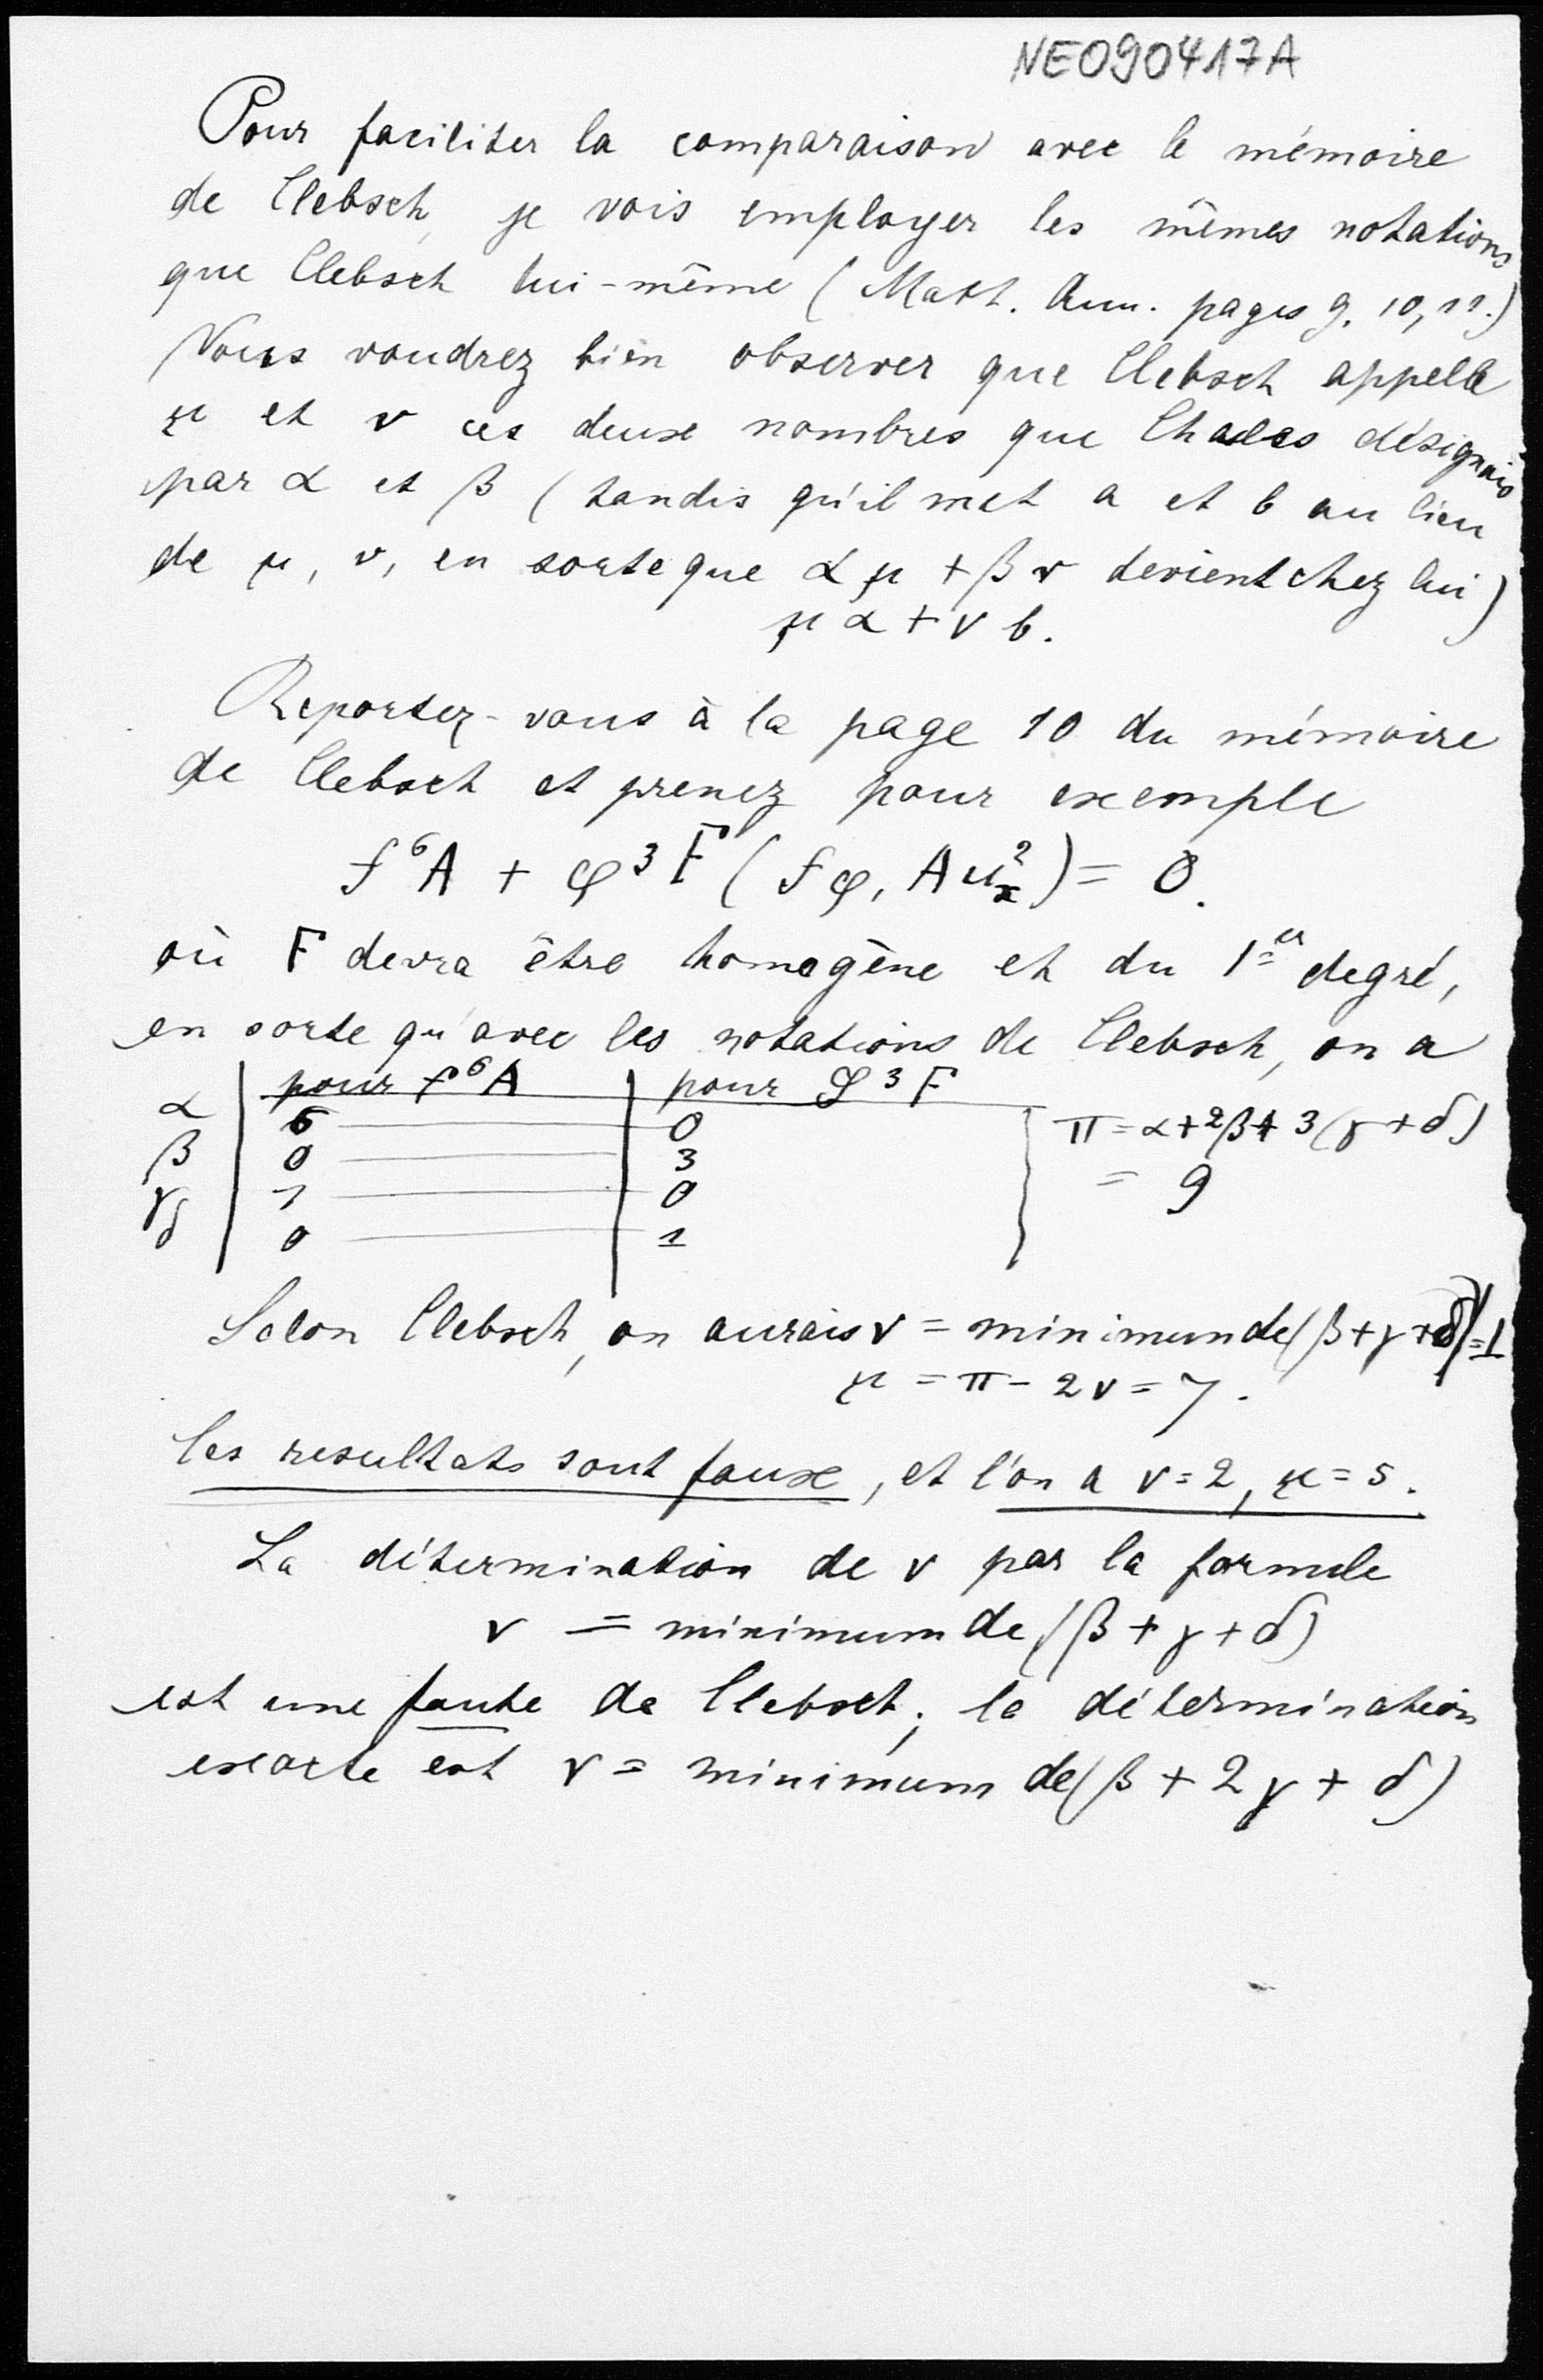 NE090417A
Pour faciliter la comparaison avec le mémoire
de Clebsch, je vais employer les mêmes notations
que Clebsch lui-même (Math. Ann. pages 9, 10, 11.)
Vous voudrez bien observer que Clebsch appelle
μ et ν ces deux nombres que Chasles désignais
par α et β (tandis qu'il met a et b au lieu
de μ, ν, en sorte que α μ + β ν devient chez lui)
μ α + ν b.
Reportez-vous à la page 10 du mémoire
de Clebsch et prenez pour exemple
f⁶A + φ³ F (fφ, Au²ₓ) = 0.
où F devra être homogène et du 1er degré,
en sorte qu'avec les notations de Clebsch, on a
pour f⁶A | pour φ³F
α | 6 — 0 | π = α + 2β + 3(γ + δ)
β | 0 — 3 | = 9
γ | 1 — 0
δ | 0 — 1
Selon Clebsch, on aurais ν = minimum de (β + γ + δ) = 1
μ = π - 2ν = 7.
Ces resultats sont faux, et l'on a ν = 2, μ = 5.
La détermination de ν par la formule
ν = minimum de (β + γ + δ)
est une faute de Clebsch; la détermination
exacte est ν = minimum de (β + 2γ + δ)